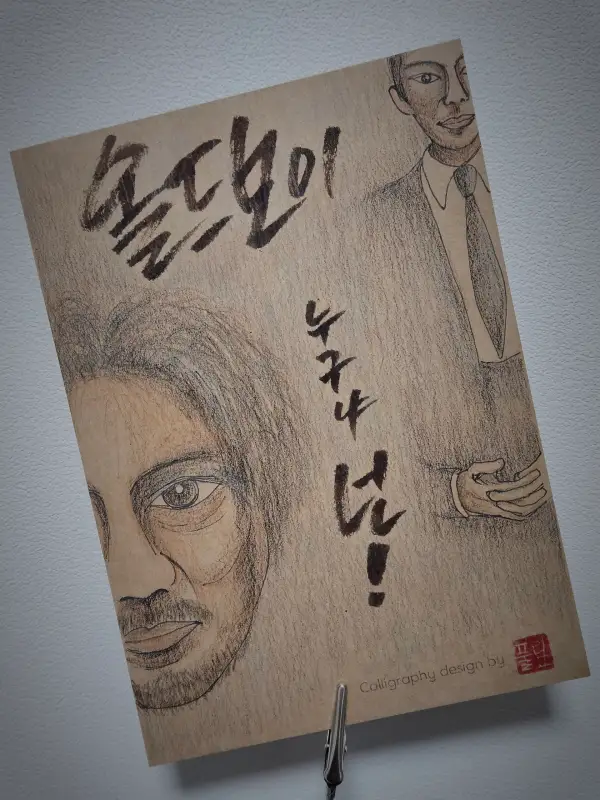 올드보이
누구냐
넌!
Colligraphy design by